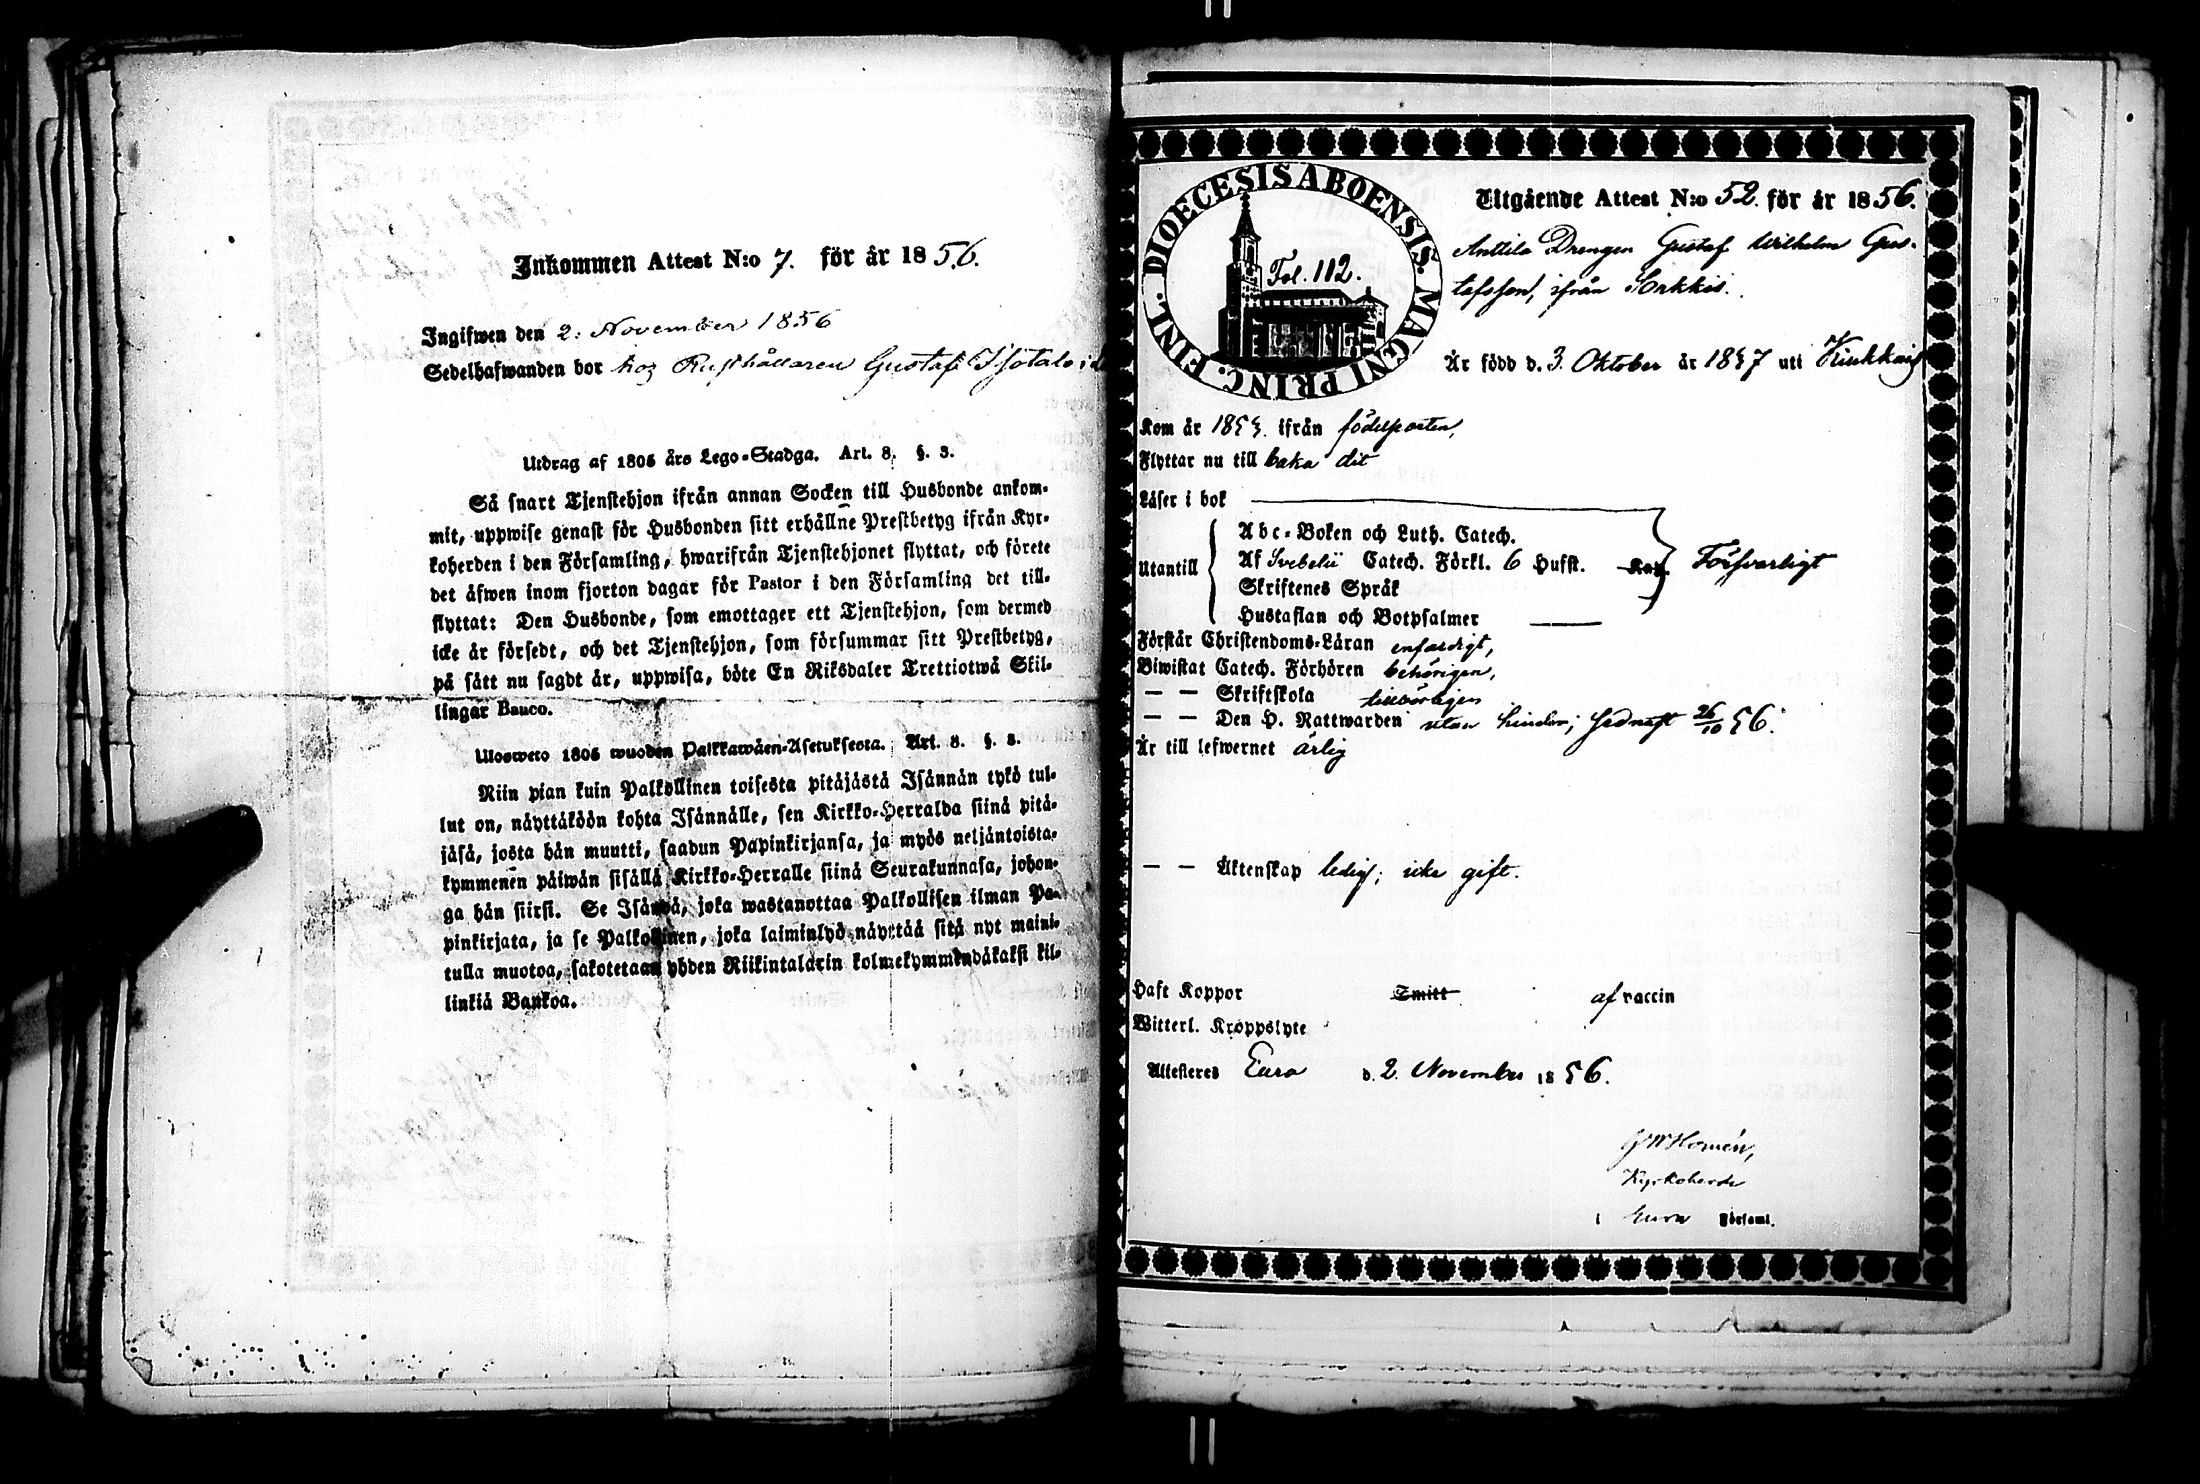 Inkommen Attest N:o 7. för år 1856.
Ingifwen den 2. November 1856
Sedelhafwanden bor hoz Rusthållaren Gustaf Isotalo i
Utdrag af 1805 års Lego-Stadga. Art. 8. §. 3.
Så snart Tjenstehjon ifrån annan Socken till Husbonde ankom-
mit, uppwise genast för Husbonden sitt erhållne Prestbetyg ifrån Kyr-
koherden i den Församling, hwarifrån Tjenstehjonet flyttat, och förete
det äfwen inom fjorton dagar för Pastor i den Församling det till-
flyttat: Den Husbonde, som emottager ett Tjenstehjon, som dermed
icke är försedt, och det Tjenstehjon, som försummar sitt Prestbetyg,
på sätt nu sagdt är, uppwisa, böte En Riksdaler Trettiotwå Skil-
lingar Banco.
Ulosweto 1805 wuoden Palkkawäen-Asetuksesta. Art. 8. §. 3.
Niin pian kuin Palkollinen toisesta pitäjästä Isännän tykö tul-
lut on, näyttäköön kohta Isännälle, sen Kirkko-Herralda siinä pitä-
jäsä, josta hän muutti, saadun Papinkirjansa, ja myös neljäntoista-
kymmenen päiwän sisällä Kirkko-Herralle siinä Seurakunnasa, johon-
ga hän siirsi. Se Isändä, joka wastanottaa Palkollisen ilman Pa-
pinkirjata, ja se Palkollinen, joka laiminlyö näyttää sitä nyt maini-
tulla muotoa, sakotetaan yhden Riikintalarin kolmekymmendäkaksi kil-
linkiä Bankoa.
DIOECESIS ABOENSIS. MAGNI PRINC. FINL.
Fol. 112.
Utgående Attest N:o 52. för år 1856.
Anttila Drengen Gustaf Wilhelm Gus-
tafsson, ifrån Sorkkis.
Är född d. 3. Oktober år 1837 uti Kiukkais
Kom år 1853. ifrån födelseorten,
Flyttar nu till baka dit
Läser i bok
Utantill
Abc-Boken och Luth. Catech.
Af Svebelii Catech. Förkl. 6 Hufst. Kap. Försvarligt
Skriftenes Språk
Hustaflan och Botpsalmer
Förstår Christendoms-Läran enfardigt,
Biwistat Catech. Förhören behörigen,
— — Skriftskola tillbörligen
— — Den H. Nattwarden utan hinder; sednast 26/10 56.
Är till lefwernet ärlig
— — Äktenskap ledig; icke gift.
Haft Koppor Smitt af vaccin
Witterl. Kroppslyte
Attesteres Eura d. 2. November 1856.
G W Homén,
Kyrkoherde
i Eura Församl.